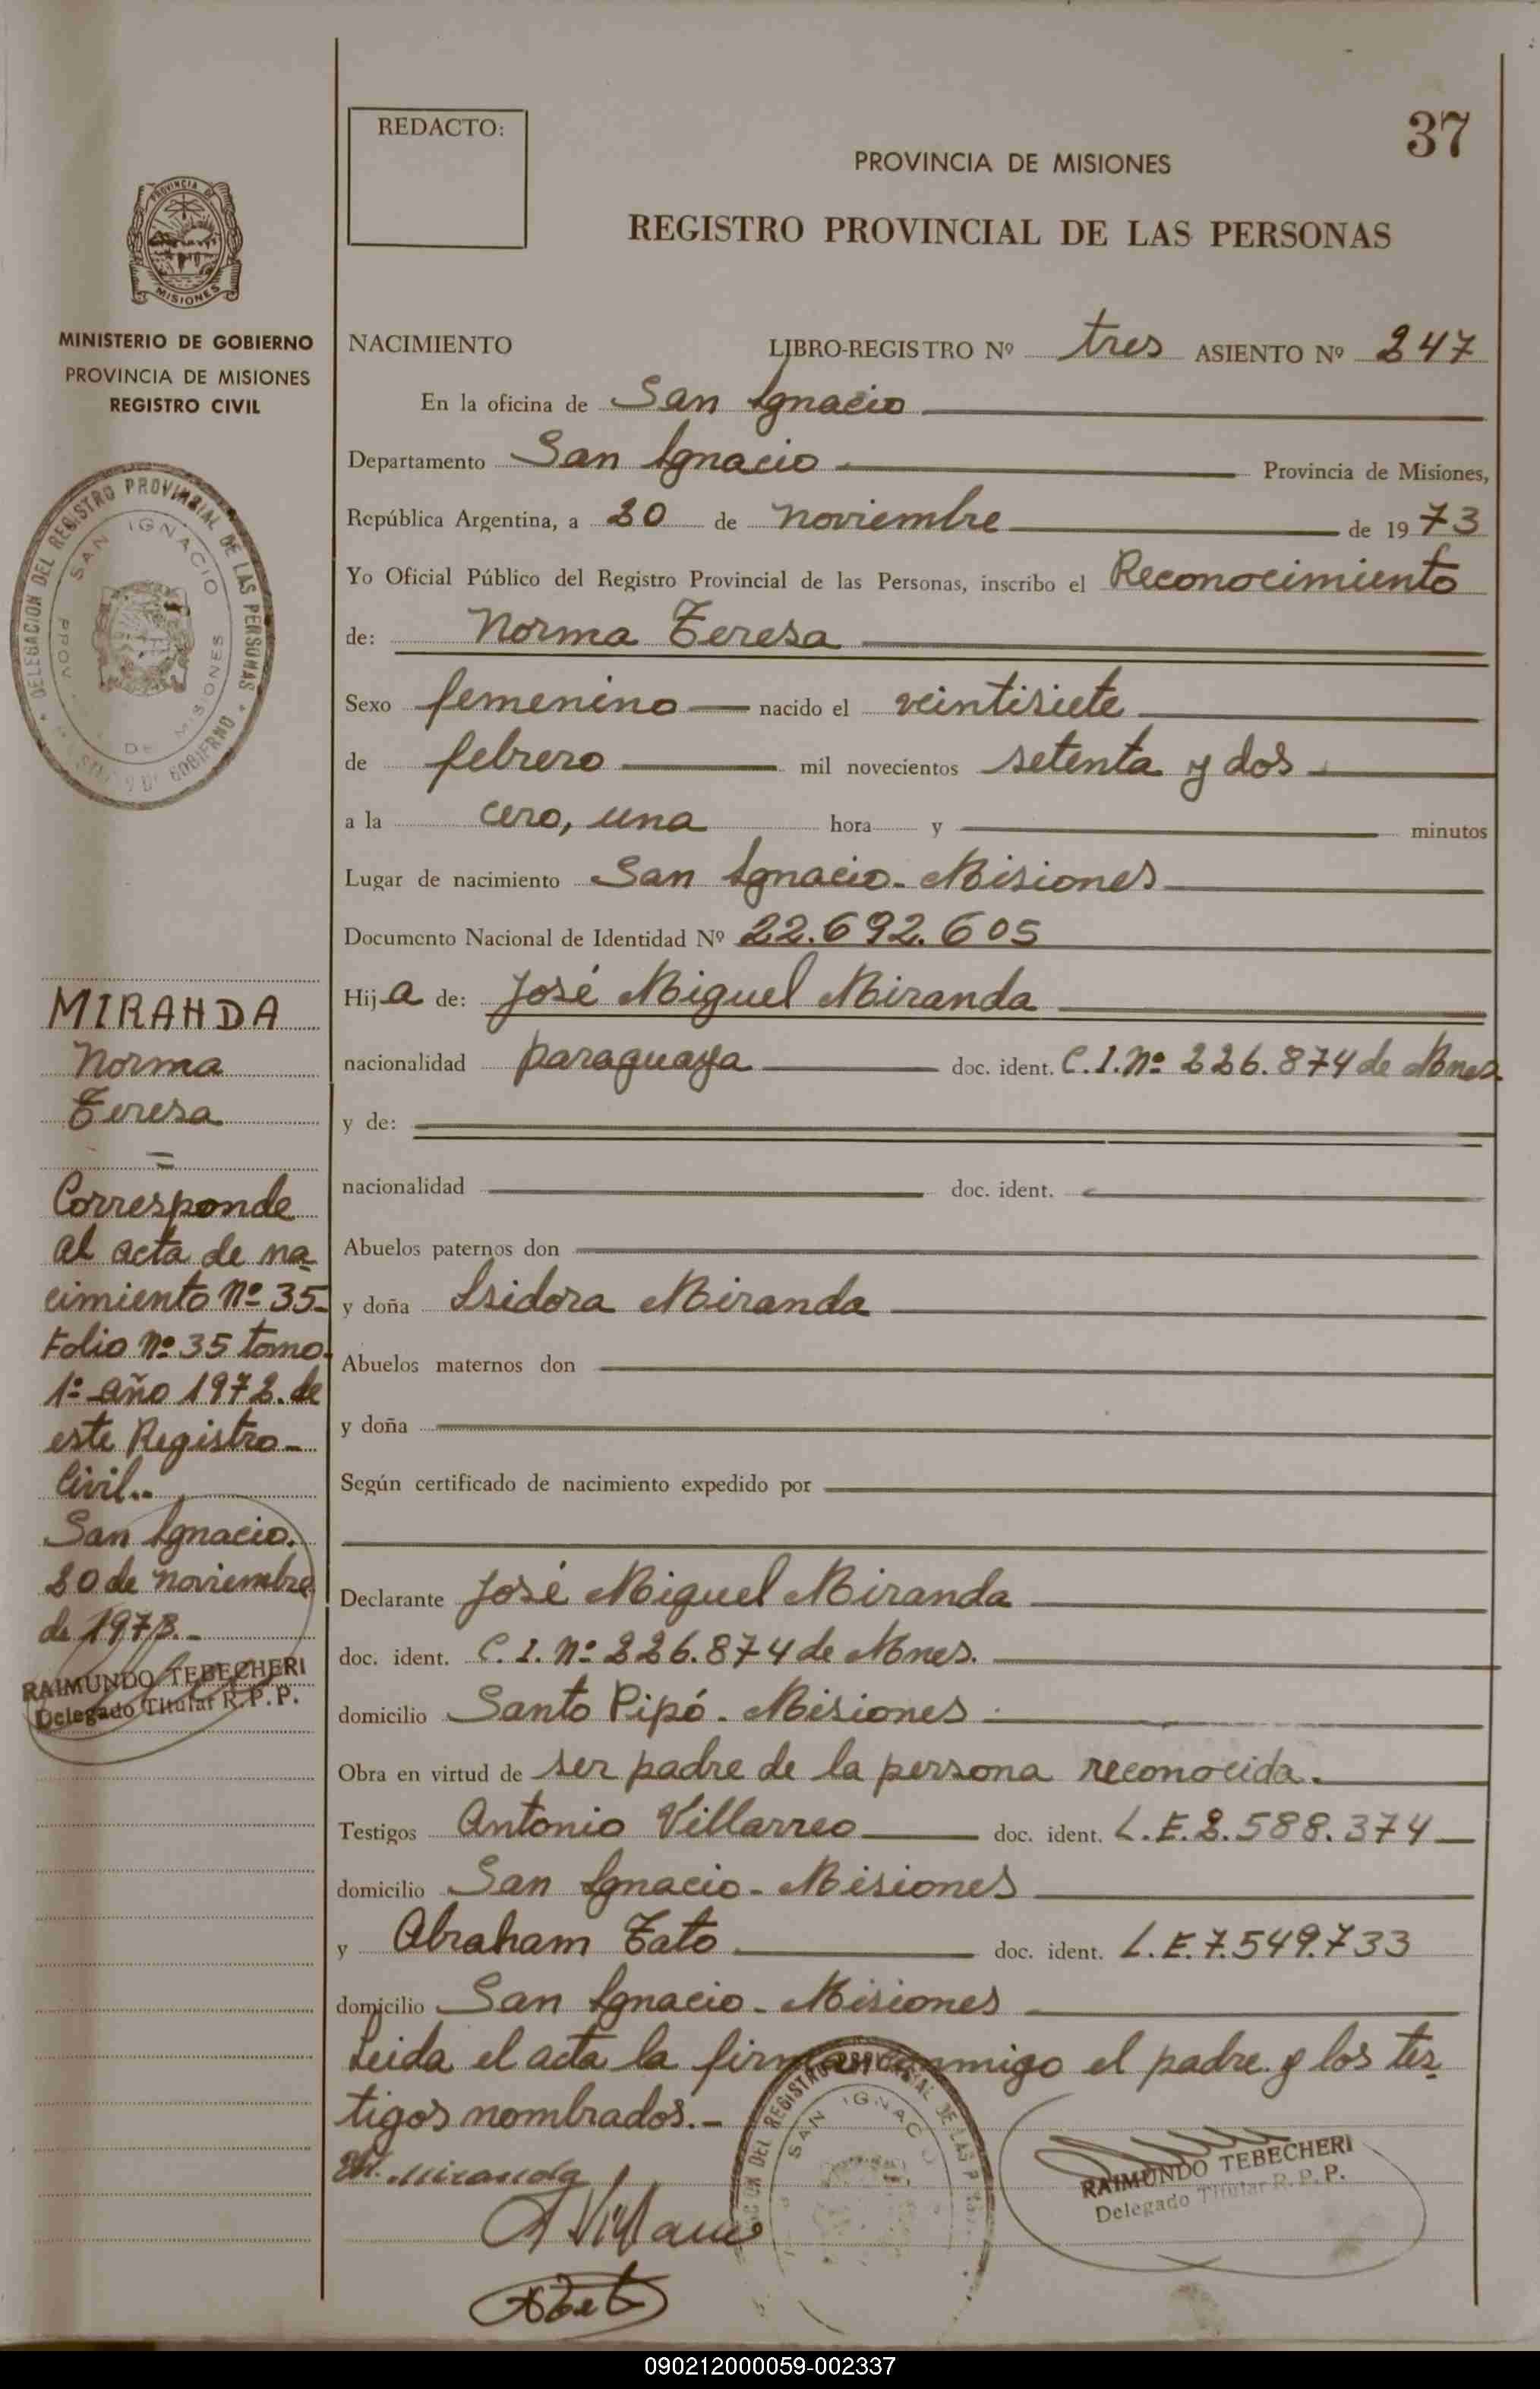 37
REDACTO:
PROVINCIA DE MISIONES
REGISTRO PROVINCIAL DE LAS PERSONAS
PROVINCIA DE
MISIONES
MINISTERIO DE GOBIERNO
PROVINCIA DE MISIONES
REGISTRO CIVIL
DELEGACION DEL REGISTRO PROVINCIAL DE LAS PERSONAS
SAN IGNACIO
PROV. DE MISIONES
NACIMIENTO LIBRO-REGISTRO Nº tres ASIENTO Nº 247
En la oficina de San Ignacio
Departamento San Ignacio Provincia de Misiones,
República Argentina, a 20 de noviembre de 1973
Yo Oficial Público del Registro Provincial de las Personas, inscribo el Reconocimiento
de: Norma Teresa
Sexo femenino nacido el veintisiete
de febrero mil novecientos setenta y dos
a la cero, una hora y minutos
Lugar de nacimiento San Ignacio. Misiones
Documento Nacional de Identidad Nº 22.692.605
Hija de: José Miguel Miranda
nacionalidad paraguaya doc. ident. C.I.Nº 226.874 de Mnes.
y de:
nacionalidad doc. ident.
Abuelos paternos don
y doña Isidora Miranda
Abuelos maternos don
y doña
Según certificado de nacimiento expedido por
Declarante José Miguel Miranda
doc. ident. C.I.Nº 226.874 de Mnes.
domicilio Santo Pipó - Misiones
Obra en virtud de ser padre de la persona reconocida.
Testigos Antonio Villarreo doc. ident. L.E.2.588.374
domicilio San Ignacio - Misiones
y Abraham Tato doc. ident. L.E.7.549.733
domicilio San Ignacio - Misiones
Leida el acta la firman conmigo el padre y los tes-
tigos nombrados.-
MIRANDA
Norma
Teresa
=
Corresponde
al acta de na-
cimiento Nº 35-
Folio Nº 35 tomo
1º año 1972. de
este Registro
Civil..
San Ignacio.
20 de noviembre
de 1973.-
RAIMUNDO TEBECHERI
Delegado Titular R.P.P.
Miranda
REGISTRO PROVINCIAL DE LAS
SAN IGNACIO
RAIMUNDO TEBECHERI
Delegado Titular R.P.P.
090212000059-002337